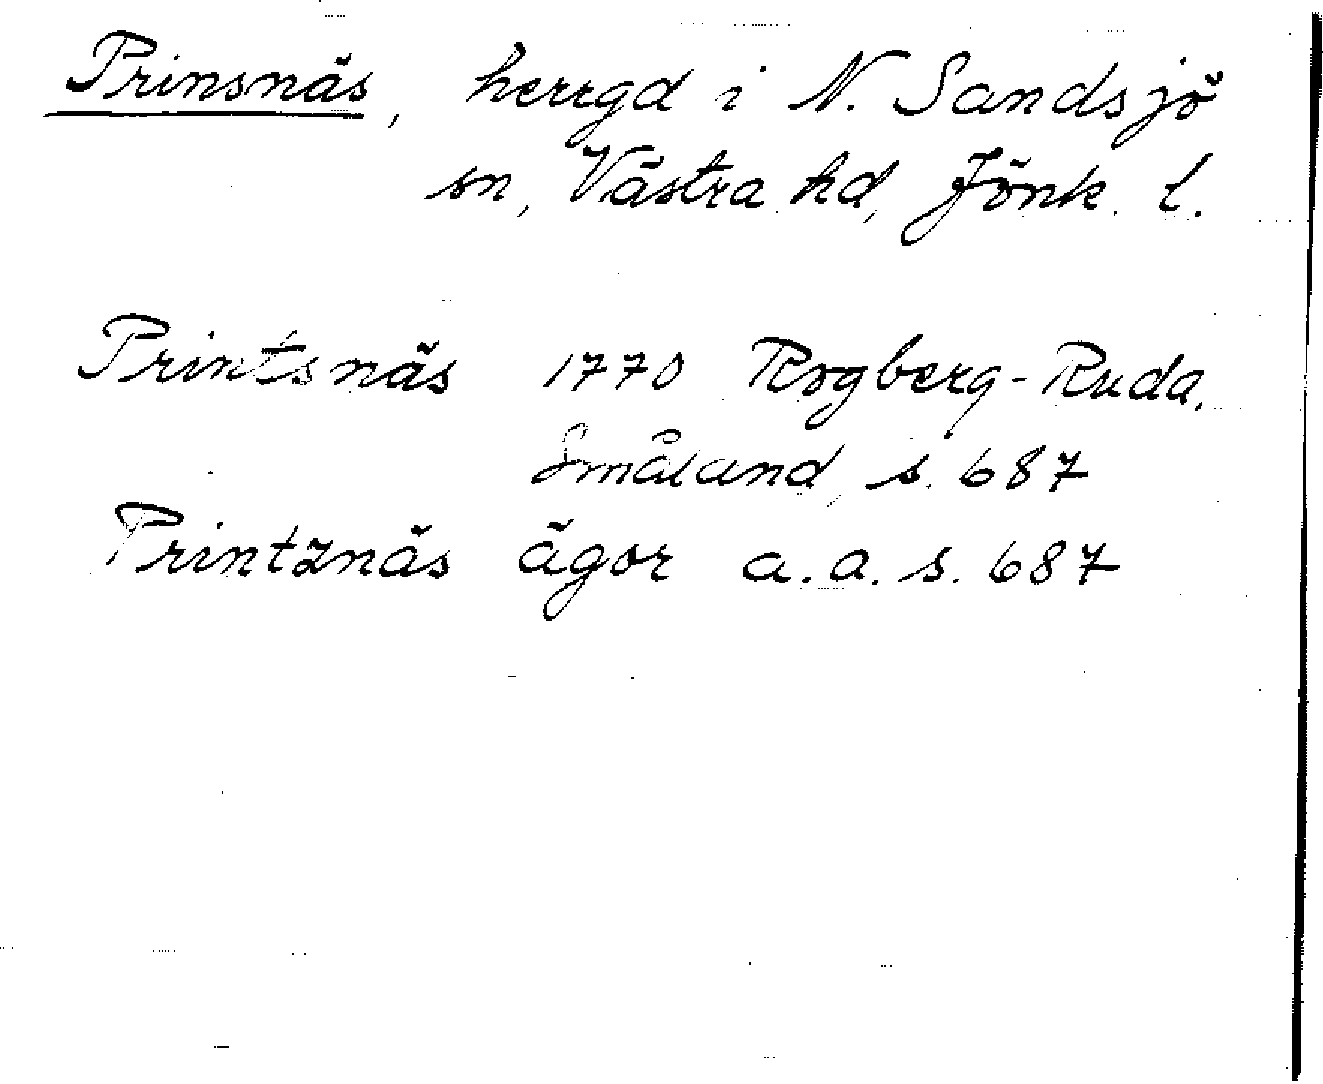 Prinsnäs, herrgd i N. Sandsjö
sn, Västra hd, Jönk. l.
Printsnäs 1770 Rogberg-Ruda,
Småland, s. 687
Printznäs ägor a.a. s. 687